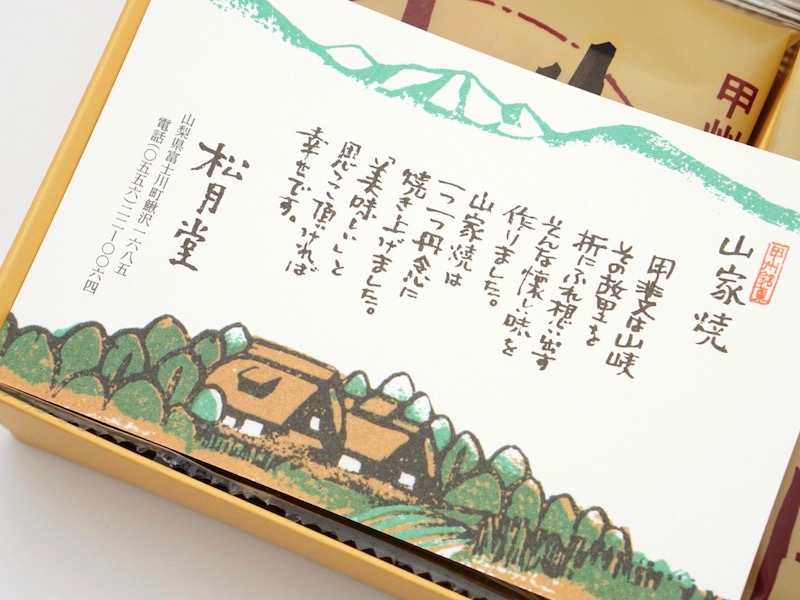 甲州銘菓
山家焼
甲斐又は山峡
その故里を
折にふれ想い出す
そんな懐しい味を
作りました。
山家焼は
一つ一つ丹念に
焼き上げました。
「美味しい」と
思って頂ければ
幸せです。
松月堂
山梨県富士川町鰍沢一六八五
電話(〇五五六)二二-〇〇六四
甲州